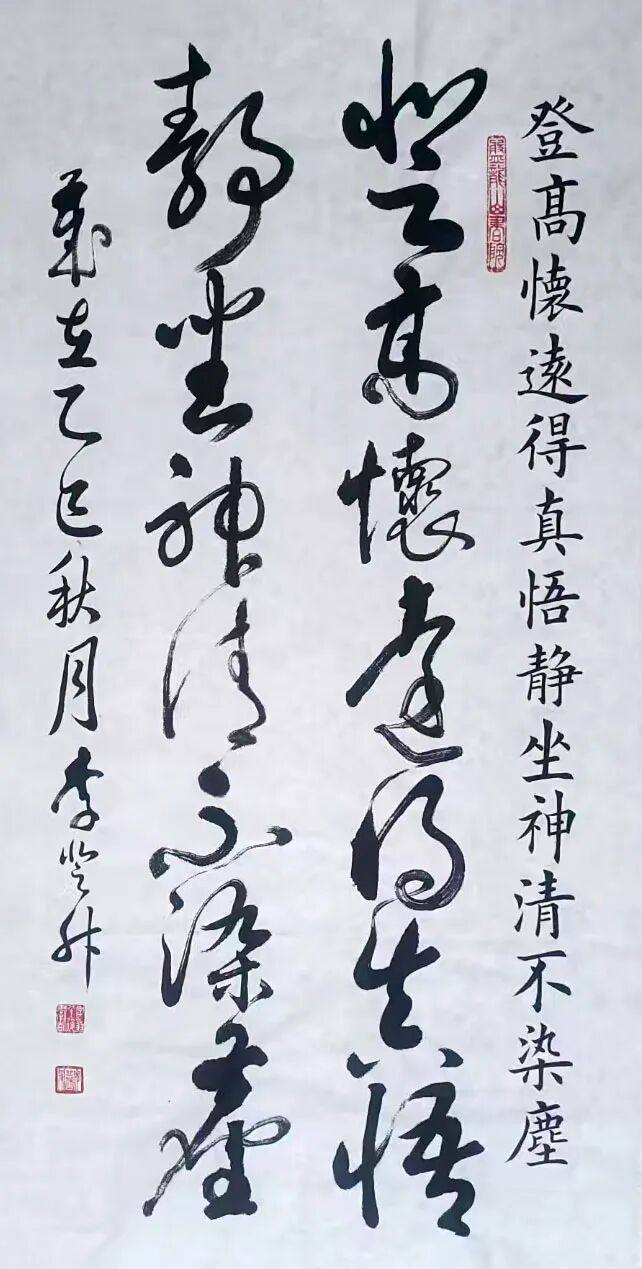 登高懷遠得真悟静坐神清不染塵
登高懷遠得真悟
静坐神清不染塵
歲在乙巳秋月李登科